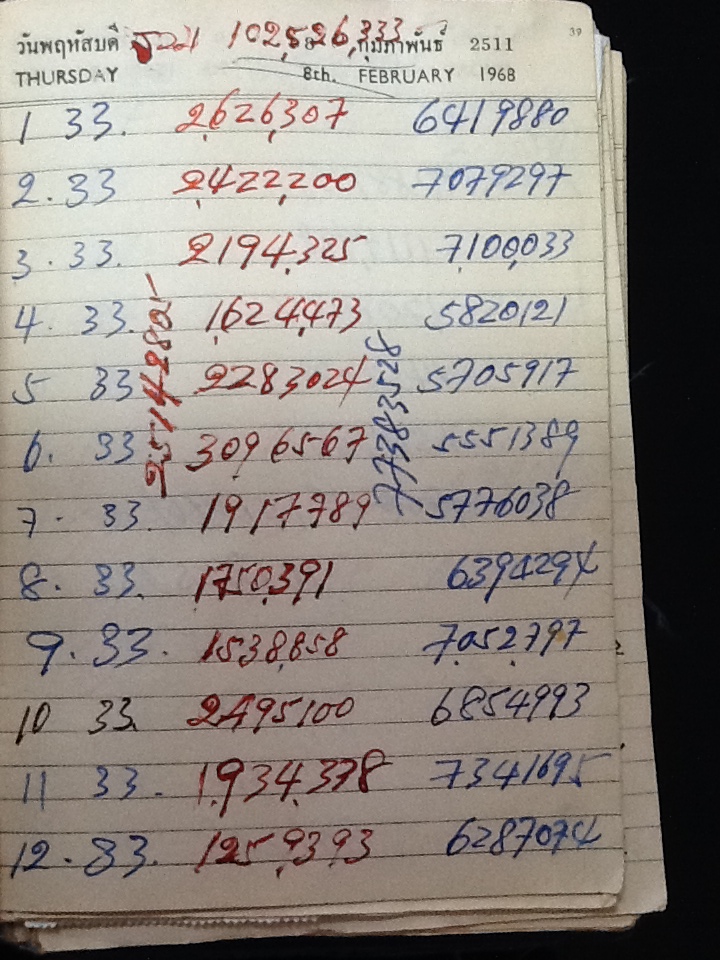 39
วันพฤหัสบดี รวม 102,526,333 8 กุมภาพันธ์ 2511
THURSDAY 8th. FEBRUARY 1968
1 33. 2,626,307 6419880
2. 33 2,422,200 7079297
3. 33. 2194,325 7,100,033
4. 33. 1,624,473 5820121
5 33 2283024 5705917
6. 33 3096567 5551389
7. 33. 1917789 5776038
8. 33. 1,750,391 6394294
9. 33. 1538,858 7,052,797
10 33. 2495100 6854993
11 33. 1,934,378 7341695
12. 33. 1259,393 6287074
25142805
77383528